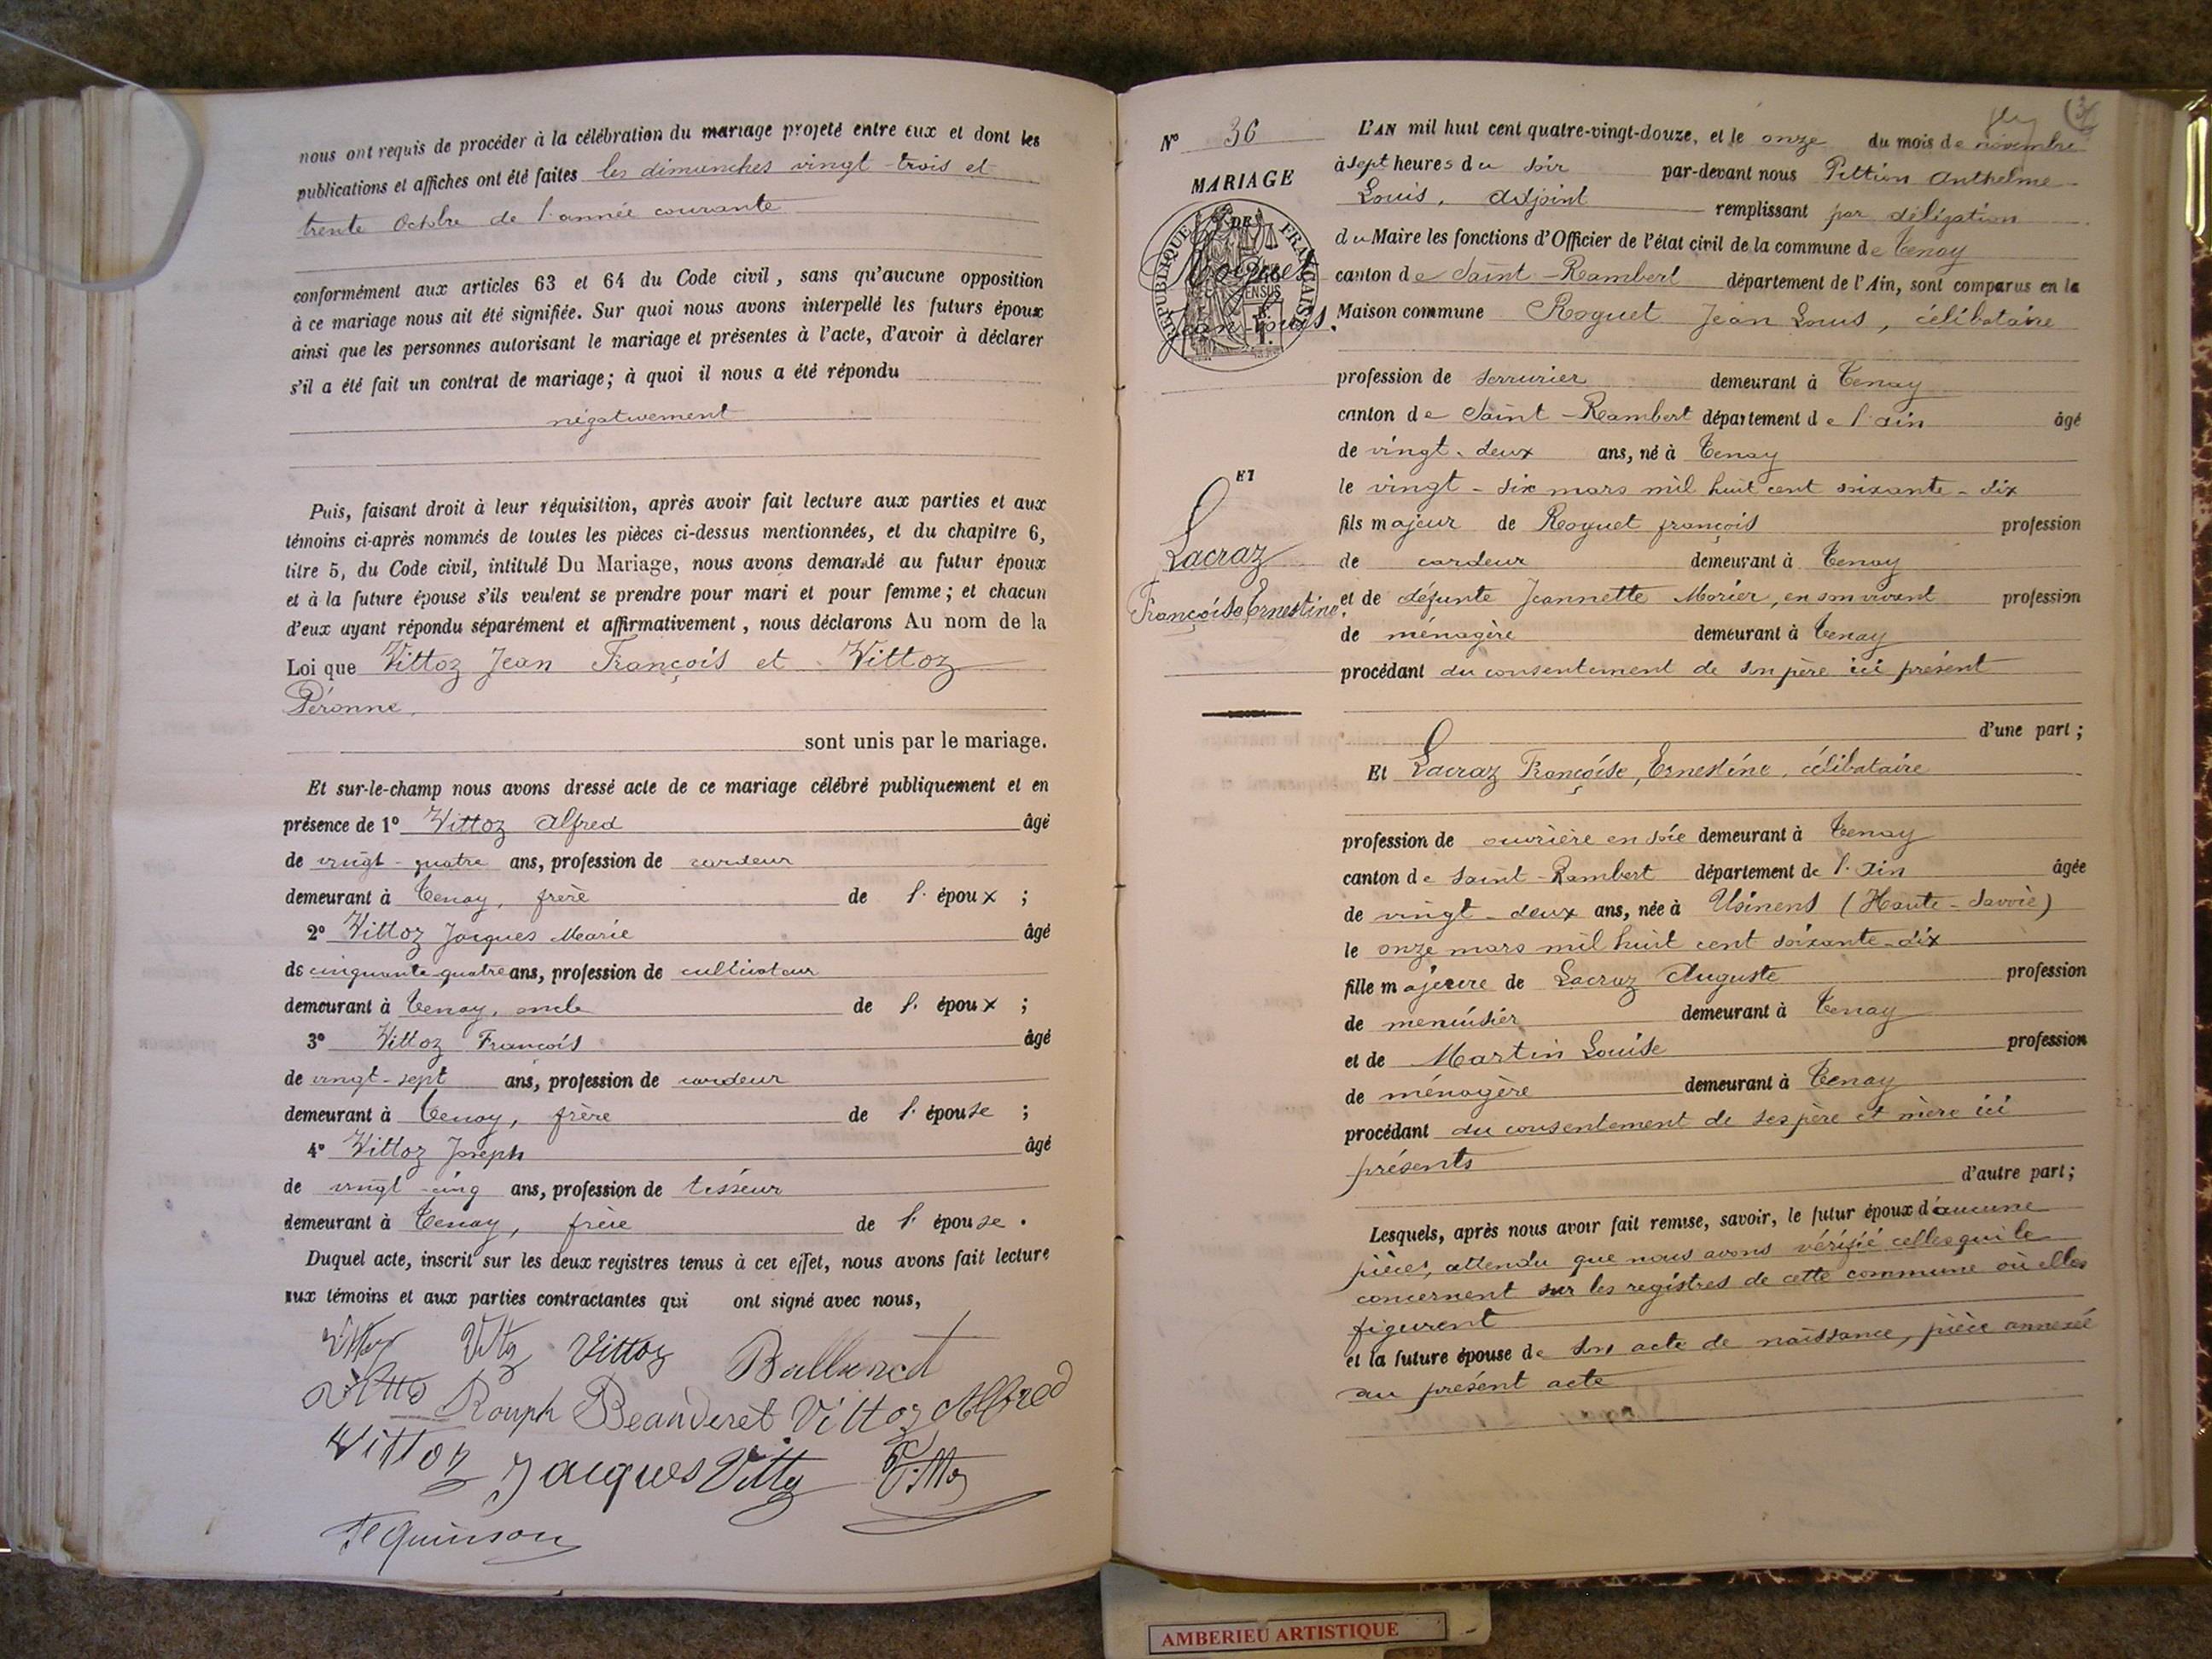 nous ont requis de procéder à la célébration du mariage projeté entre eux et dont les
publications et affiches ont été faites les dimanches vingt-trois et
trente Octobre de l'année courante
conformément aux articles 63 et 64 du Code civil, sans qu'aucune opposition
à ce mariage nous ait été signifiée. Sur quoi nous avons interpellé les futurs époux
ainsi que les personnes autorisant le mariage et présentes à l'acte, d'avoir à déclarer
s'il a été fait un contrat de mariage; à quoi il nous a été répondu
négativement
Puis, faisant droit à leur réquisition, après avoir fait lecture aux parties et aux
témoins ci-après nommés de toutes les pièces ci-dessus mentionnées, et du chapitre 6,
titre 5, du Code civil, intitulé Du Mariage, nous avons demandé au futur époux
et à la future épouse s'ils veulent se prendre pour mari et pour femme; et chacun
d'eux ayant répondu séparément et affirmativement, nous déclarons Au nom de la
Loi que Vittoz Jean François et Vittoz
Péronne,
sont unis par le mariage.
Et sur-le-champ nous avons dressé acte de ce mariage célébré publiquement et en
présence de 1° Vittoz Alfred âgé
de vingt-quatre ans, profession de cardeur
demeurant à Tenay, frère de l'époux ;
2° Vittoz Jacques Marie âgé
de cinquante-quatre ans, profession de cultivateur
demeurant à Tenay, oncle de l'époux ;
3° Vittoz François âgé
de vingt-sept ans, profession de cardeur
demeurant à Tenay, frère de l'épouse ;
4° Vittoz Joseph âgé
de vingt-cinq ans, profession de tisseur
demeurant à Tenay, frère de l'épouse.
Duquel acte, inscrit sur les deux registres tenus à cet effet, nous avons fait lecture
aux témoins et aux parties contractantes qui ont signé avec nous,
Vittoz
Vittoz Alfred
Vittoz Jacques Vittoz Vittoz
N° 36
MARIAGE
DE
RÉPUBLIQUE FRANÇAISE
Roguet
Jean-Louis.
ET
Lacraz
Françoise, Ernestine.
L'AN mil huit cent quatre-vingt-douze, et le onze du mois de novembre
à sept heures du soir par-devant nous Pittion Anthelme
Louis, adjoint remplissant par déligation
du Maire les fonctions d'Officier de l'état civil de la commune de Tenay
canton de Saint-Rambert département de l'Ain, sont comparus en la
Maison commune Roguet Jean Louis, célibataire
profession de serrurier demeurant à Tenay
canton de Saint-Rambert département de l'ain âgé
de vingt-deux ans, né à Tenay
le vingt-six mars mil huit cent soixante-dix
fils majeur de Roguet françois profession
de cardeur demeurant à Tenay
et de défunte Jeannette Morier, en son vivant profession
de ménagère demeurant à Tenay
procédant du consentement de son père ici présent
d'une part;
Et Lacraz Françoise, Ernestine, célibataire
profession de ouvrière en soie demeurant à Tenay
canton de Saint-Rambert département de l'Ain âgée
de vingt-deux ans, née à Usinens (Haute-Savoie)
le onze mars mil huit cent soixante-dix
fille majeure de Lacraz Auguste profession
de menuisier demeurant à Tenay
et de Martin Louise profession
de ménagère demeurant à Tenay
procédant du consentement de ses père et mère ici
présents
d'autre part;
Lesquels, après nous avoir fait remise, savoir, le futur époux d'aucune
pièces, attendu que nous avons vérifié celles qui le
concernent sur les registres de cette commune où elles
figurent
et la future épouse de son acte de naissance, pièce annexée
au présent acte
AMBERIEU ARTISTIQUE